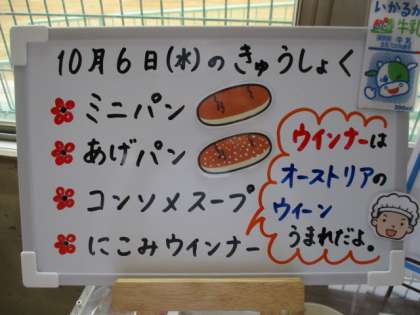 10月6日(水)のきゅうしょく
ミニパン
あげパン
コンソメスープ
にこみウインナー
ウインナーは
オーストリアの
ウィーン
うまれだよ。
いかるが
牛乳